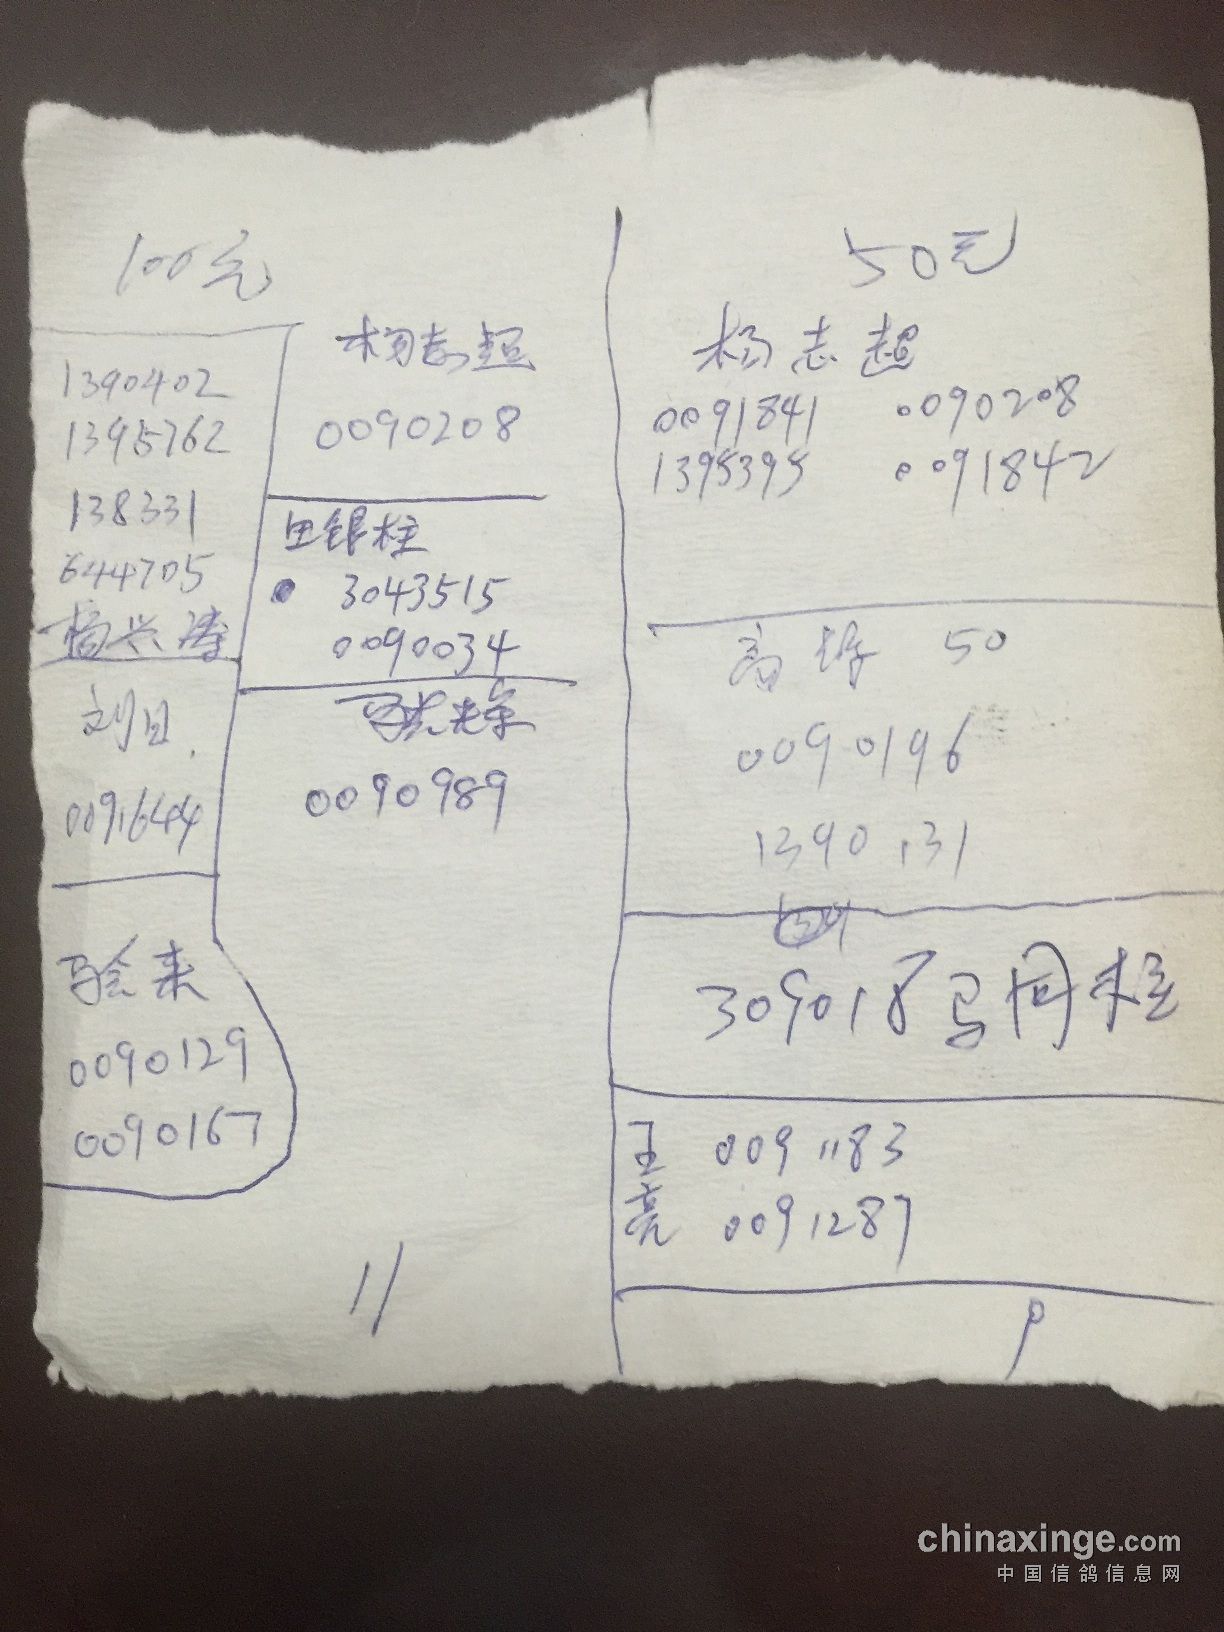 100元
1390402
1395762
138331
644705
杨兴涛
刘日
0091644
马会来
0090129
0090167
杨志超
0090208
田银柱
3043515
0090034
0090989
11
50元
杨志超
0091841 0090208
1395395 0091842
高 50
0090196
1390131
309018 马同柱
王亮 0091183
0091287
chinaxinge.com
中国信鸽信息网